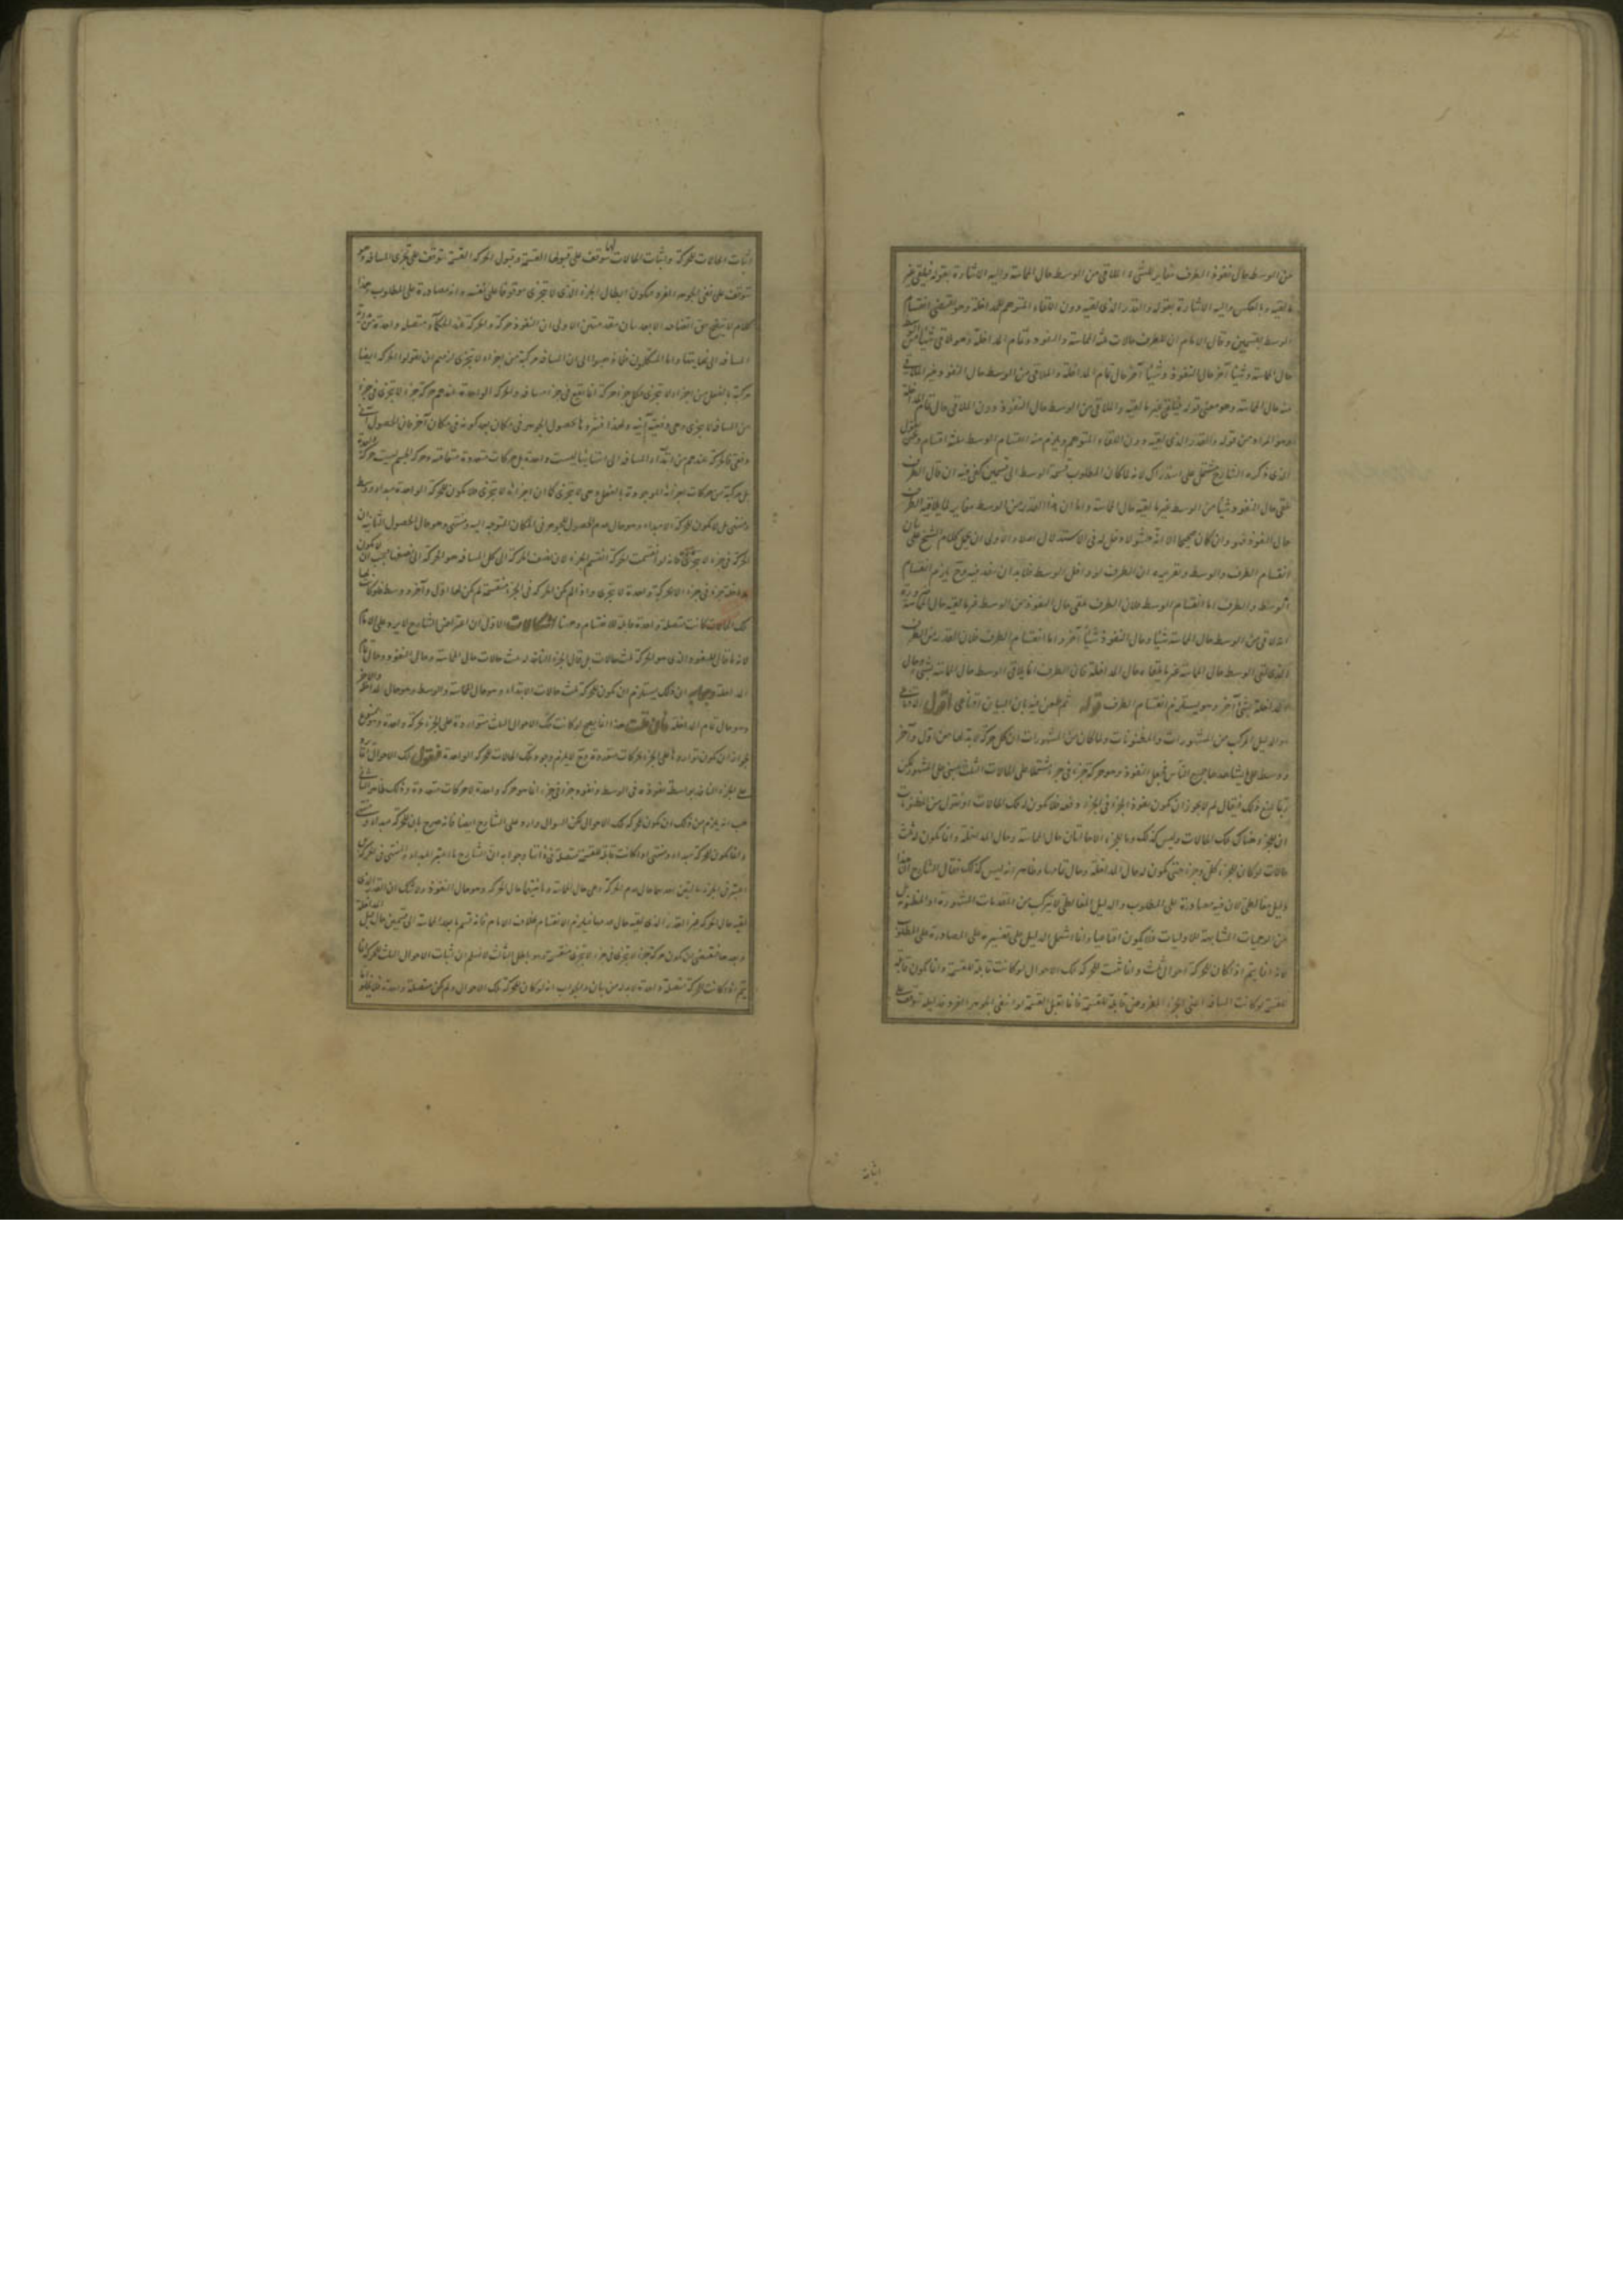 من الوسط حال نفوذ الطرف مغاير للشيء الملاقى من الوسط حال المماسة واليه الاشارة بقوله فيلقى غير
ما لقيه وبالعكس واليه الاشارة بقوله والقدر الذى لقيه دون اللقاء المتوهم للمداخلة وهو يقتضى انقسام
الوسط بقسمين وقال الامام ان للطرف حالات ثلثة المماسة والنفوذ وتمام المداخلة وهو لاقى شيئا من الوسط
حال المماسة وشيئا آخر حال النفوذ وشيئا آخر حال تمام المداخلة والملاقى من الوسط حال النفوذ غير الملاقى
منه حال المماسة وهو معنى قوله فيلقى غير ما لقيه والملاقى من الوسط حال النفوذ دون الملاقى حال تمام المداخلة
وهو المراد من قوله والقدر الذى لقيه دون اللقاء المتوهم ويلزم منه انقسام الوسط بثلثة اقسام
الذى ذكره الشارح مشتمل على استدراك لانه لما كان المطلوب قسمة الوسط الى قسمين كفى فيه ان قال الطرف
يلقى حال النفوذ شيئا من الوسط غير ما لقيه حال المماسة واما ان هذا القدر من الوسط مغاير لما يلاقيه الطرف
حال النفوذ فهو وان كان صحيحا الا انه حشو لا دخل له فى الاستدلال اصلا والاولى ان يحمل كلام الشيخ على بيان
انقسام الطرف والوسط وتقريره ان الطرف لو داخل الوسط فلا بد ان ينفذ فيه وح يلزم انقسام
الوسط والطرف اما انقسام الوسط فلان الطرف يلقى حال النفوذ من الوسط غير ما لقيه حال المماسة
لاقى من الوسط حال المماسة شيئا وحال النفوذ شيئا آخر واما انقسام الطرف فلان القدر من الطرف
الذى لقى الوسط حال المماسة غير ما يلقاه حال المداخلة فان الطرف انما يلاقى الوسط حال المماسة بشىء وحال
المداخلة بشىء آخر وهو يستلزم انقسام الطرف قوله ثم طعن فيه بان البيان اقناعى اقول
هو الدليل المركب من المشهورات والمظنونات ولما كان من المشهورات ان كل حركة لا بد لها من اول وآخر
ووسط على ما يشاهدها جميع الناس فجعل النفوذ وهو حركة جزء فى جزء مشتملا على الحالات الثلث مبنى على المشهور لكن
ربما يمنع ذلك فيقال لم لا يجوز ان يكون نفوذ الجزء فى الجزء دفعة فلا يكون له تلك الحالات او نقول من المظنونات
ان للجزء هناك تلك الحالات وليس كذلك وما للجزء الا حالتان حال المماسة وحال المداخلة وانما يكون له ثلث
حالات لو كان للجزء كل وجزء حتى يكون له حال المداخلة وحال تمامها وظاهر انه ليس كذلك فقال الشارح ان هذا
دليل مغالطى لان فيه مصادرة على المطلوب والدليل المغالطى لا يتركب من المقدمات المشهورة او المظنونة بل
من الوهميات المشابهة للاوليات فلا يكون اقناعيا وانما اشتمل الدليل على تفسيره على المصادرة على المطلوب
لانه انما يتم اذا كان للحركة احوال ثلث وانما يثبت للحركة تلك الاحوال لو كانت قابلة للقسمة وانما يكون قابلة
للقسمة لو كانت المسافة اعنى الجزء المفروض قابلة للقسمة فانما تقبل القسمة لو انتفى الجوهر الفرد
اثبات
اثبات الحالات للحركة واثبات الحالات لها يتوقف على قبولها القسمة وقبول الحركة القسمة يتوقف على تجزى المسافة وهو
يتوقف على نفى الجوهر الفرد فيكون ابطال الجزء الذى لا يتجزى موقوفا على نفسه وانه مصادرة على المطلوب وهذا
الكلام لا يتضح حق اتضاحه الا بعد بيان مقدمتين الاولى ان النفوذ حركة والحركة عند الحكماء متصلة واحدة من
المسافة الى نهايتها واما المتكلمون فلما ذهبوا الى ان المسافة مركبة من اجزاء لا يتجزى لزمهم ان يقولوا الحركة ايضا
مركبة بالفعل من اجزاء لا يتجزى وكل جزء حركة انما يقع فى جزء مسافة والحركة الواحدة عندهم حركة جزء لا يتجزى فى جزء
من المسافة لا يتجزى وهى دفعية آنية ولهذا فسروها بحصول الجوهر فى مكان بعد كونه فى مكان آخر فان الحصول آنى
دفعى فالحركة عندهم من ابتداء المسافة الى انتهائها ليست واحدة بل حركات متعددة متعاقبة وحركة الجسم ليست حركة واحدة
بل مركبة من حركات اجزائه الموجودة بالفعل وهى لا يتجزى كما ان اجزائه لا يتجزى فلا يكون للحركة الواحدة مبداء ووسط
ومنتهى بل لا يكون للحركة الا مبداء وهو حال عدم الحصول للجوهر فى المكان المتوجه اليه ومنتهى وهو حال الحصول الثانية ان
الحركة فى جزء لا يتجزى فانه لو انقسمت الحركة انقسم الجزء لان نصف الحركة الى كل المسافة هو الحركة الى نصفها فيجب ان لا يكون
مداخلة جزء فى جزء الا لحركة واحدة لا يتجزى واذا لم يكن الحركة فى الجزء منقسمة لم يكن لها اول وآخر ووسط فلو كانت لها
تلك الحالات كانت متصلة واحدة قابلة للانقسام وههنا اشكالات الاول ان اعتراض الشارح لا يرد على الامام
لانه ما قال للنفوذ الذى هو الحركة ثلث حالات بل قال الجزء النافذ له ثلث حالات حال المماسة وحال النفوذ وحال تمام
المداخلة وجوابه ان ذلك يستلزم ان يكون للحركة ثلث حالات الابتداء وهو حال المماسة والوسط وهو حال المداخلة والآخر
وهو حال تمام المداخلة فان قلت هذا انما يصح لو كانت تلك الاحوال الثلث متواردة على الجزء بحركة واحدة وهو ممنوع
لجواز ان يكون تواردها على الجزء بحركات متعددة وح لا يلزم وجود تلك الحالات للحركة الواحدة فنقول تلك الاحوال
على الجزء النافذ بواسطة نفوذه فى الوسط ونفوذ جزء فى جزء انما هو حركة واحدة لا حركات متعددة وذلك ظاهر الثانى
هب انه يلزم من ذلك ان يكون للحركة تلك الاحوال لكن السؤال وارد على الشارح ايضا فانه صرح بان للحركة مبداء ومنتهى
وانما يكون للحركة مبداء ومنتهى لو كانت قابلة للقسمة متصلة فى ذاتها وجوابه ان الشارح ما اعتبر المبداء والمنتهى فى الحركة بل
اعتبر فى الجزء حالتين احدهما حال عدم الحركة وهى حال المماسة وثانيتهما حال الحركة وهو حال النفوذ ولا شك ان القدر الذى
لقيه حال الحركة غير القدر الذى لقيه حال عدمها فيلزم الانقسام بخلاف الامام فانه قسم ما بعد المماسة الى قسمين حال قبل المداخلة
وبعدها فيقتضى ان يكون حركة جزء لا يتجزى فى جزء لا يتجزى منقسمة وهو باطل الثالث لا نسلم ان اثبات الاحوال الثلث للحركة انما
يتم اذا كانت للحركة متصلة واحدة لا بد له من بيان والجواب انه لو كان للحركة تلك الاحوال ولم يكن متصلة واحدة